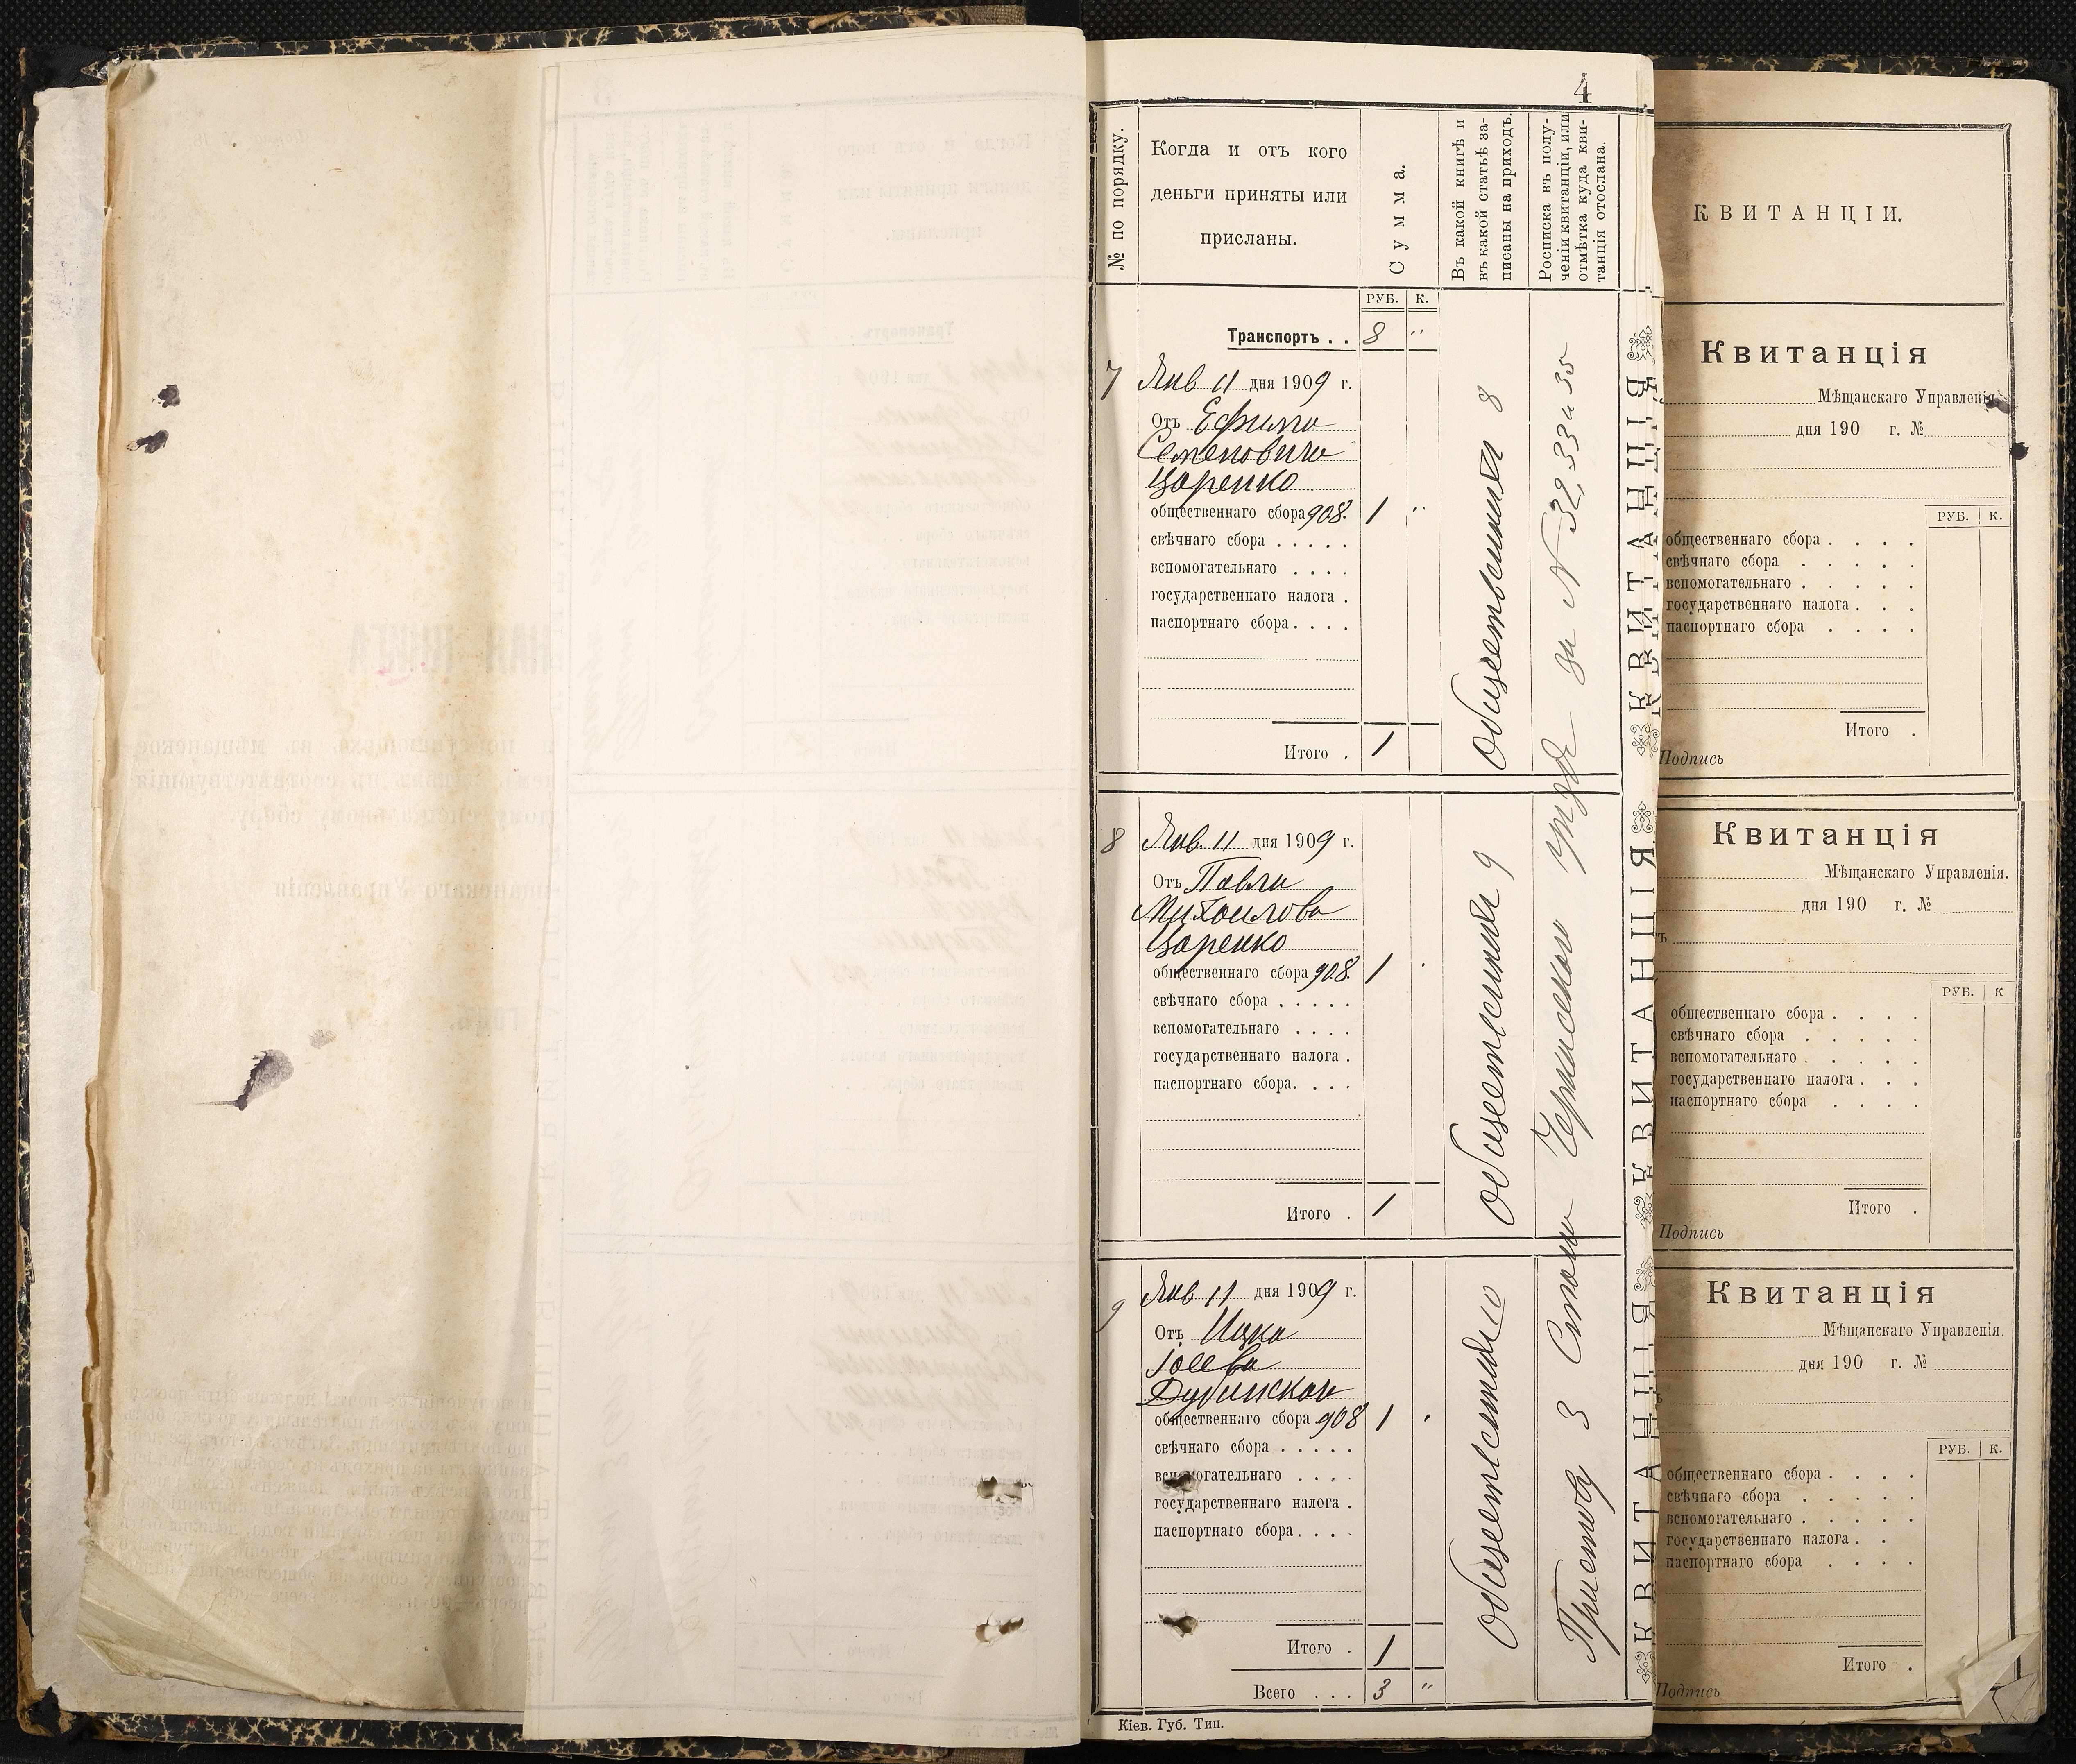 4
№ по порядку.
Когда и отъ кого
деньги приняты или
присланы.
Сумма.
Въ какой книгѣ и
въ какой статьѣ за-
писаны на приходъ.
Росписка въ полу-
ченіи квитанціи, или
отмѣтка куда кви-
танція отослана.
РУБ. К.
Транспортъ . . 8 "
7 Янв 11 дня 1909 г.
Отъ Ефима
Семеновича
Царенко
общественнаго сбора 908. 1 "
свѣчнаго сбора . . . . .
вспомогательнаго . . . .
государственнаго налога .
паспортнаго сбора . . . .
Итого . 1
Общественная 8
8 Янв. 11 дня 1909 г.
Отъ Павла
Михайлова
Царенко
общественнаго сбора 908. 1
свѣчнаго сбора . . . . .
вспомогательнаго . . . .
государственнаго налога .
паспортнаго сбора . . . .
Итого . 1
Общественная 9
9 Янв 11 дня 1909 г.
Отъ Ицка
Іосева
Дубинская
общественнаго сбора 908 1
свѣчнаго сбора . . . . .
вспомогательнаго . . . .
государственнаго налога .
паспортнаго сбора . . . .
Итого . 1
Всего . . . 3 "
Общественная 10
Приставу 3 Стана Черкасскаго за № 32, 33 и 35
КВИТАНЦІЯ
КВИТАНЦІЯ
КВИТАНЦІЯ
Кіев. Губ. Тип.
КВИТАНЦІИ.
Квитанція
Мѣщанскаго Управленія
дня 190 г. №
РУБ. К.
общественнаго сбора . . . .
свѣчнаго сбора . . . . .
вспомогательнаго . . . . .
государственнаго налога . . .
паспортнаго сбора . . . .
Итого .
Подпись
Квитанція
Мѣщанскаго Управленія.
дня 190 г. №
РУБ. К
общественнаго сбора . . . .
свѣчнаго сбора . . . . .
вспомогательнаго . . . . .
государственнаго налога . . .
паспортнаго сбора . . . .
Итого .
Подпись
Квитанція
Мѣщанскаго Управленія.
дня 190 г. №
РУБ. К.
общественнаго сбора . . . .
свѣчнаго сбора . . . . .
вспомогательнаго . . . . .
государственнаго налога . .
паспортнаго сбора . . . .
Итого .
Подпись